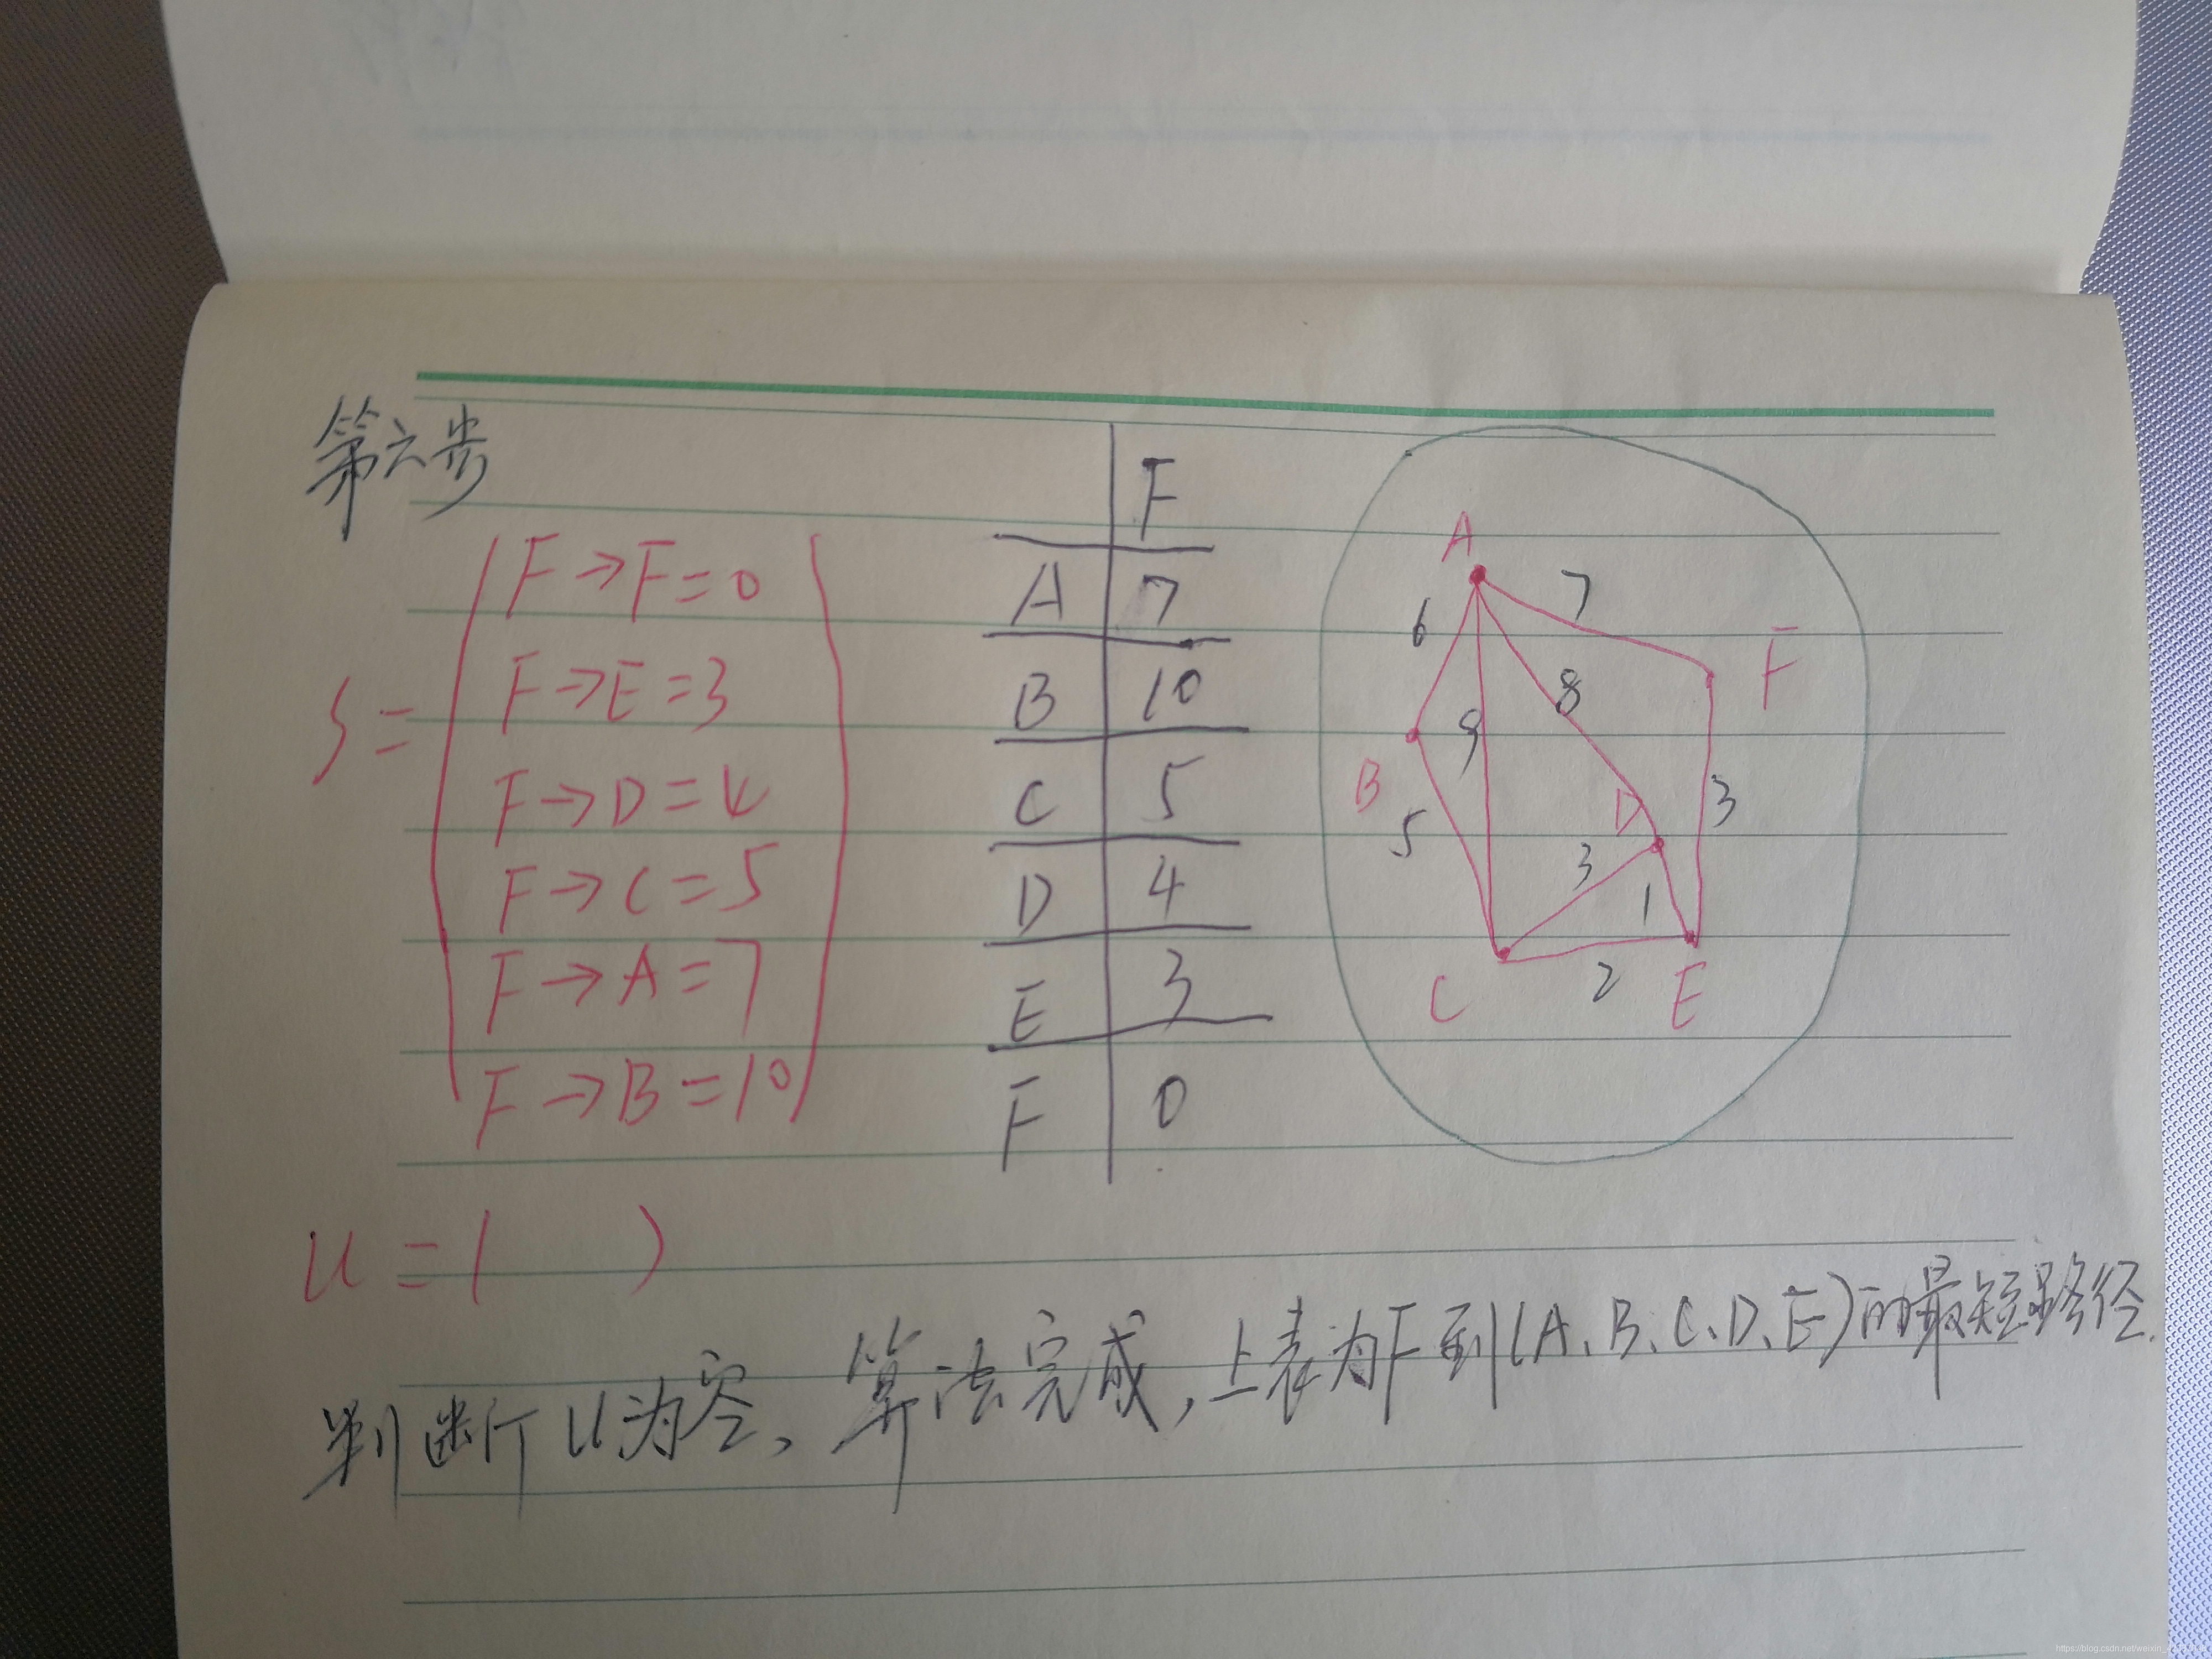 第六步
S =
F → F = 0
F → E = 3
F → D = 4
F → C = 5
F → A = 7
F → B = 10
F
A 7
B 10
C 5
D 4
E 3
F 0
A
7
6
F
8
9
B
D
3
5
3
1
C
2
E
U = ( )
判断U为空、算法完成,上表为F到(A、B、C、D、E)的最短路径.